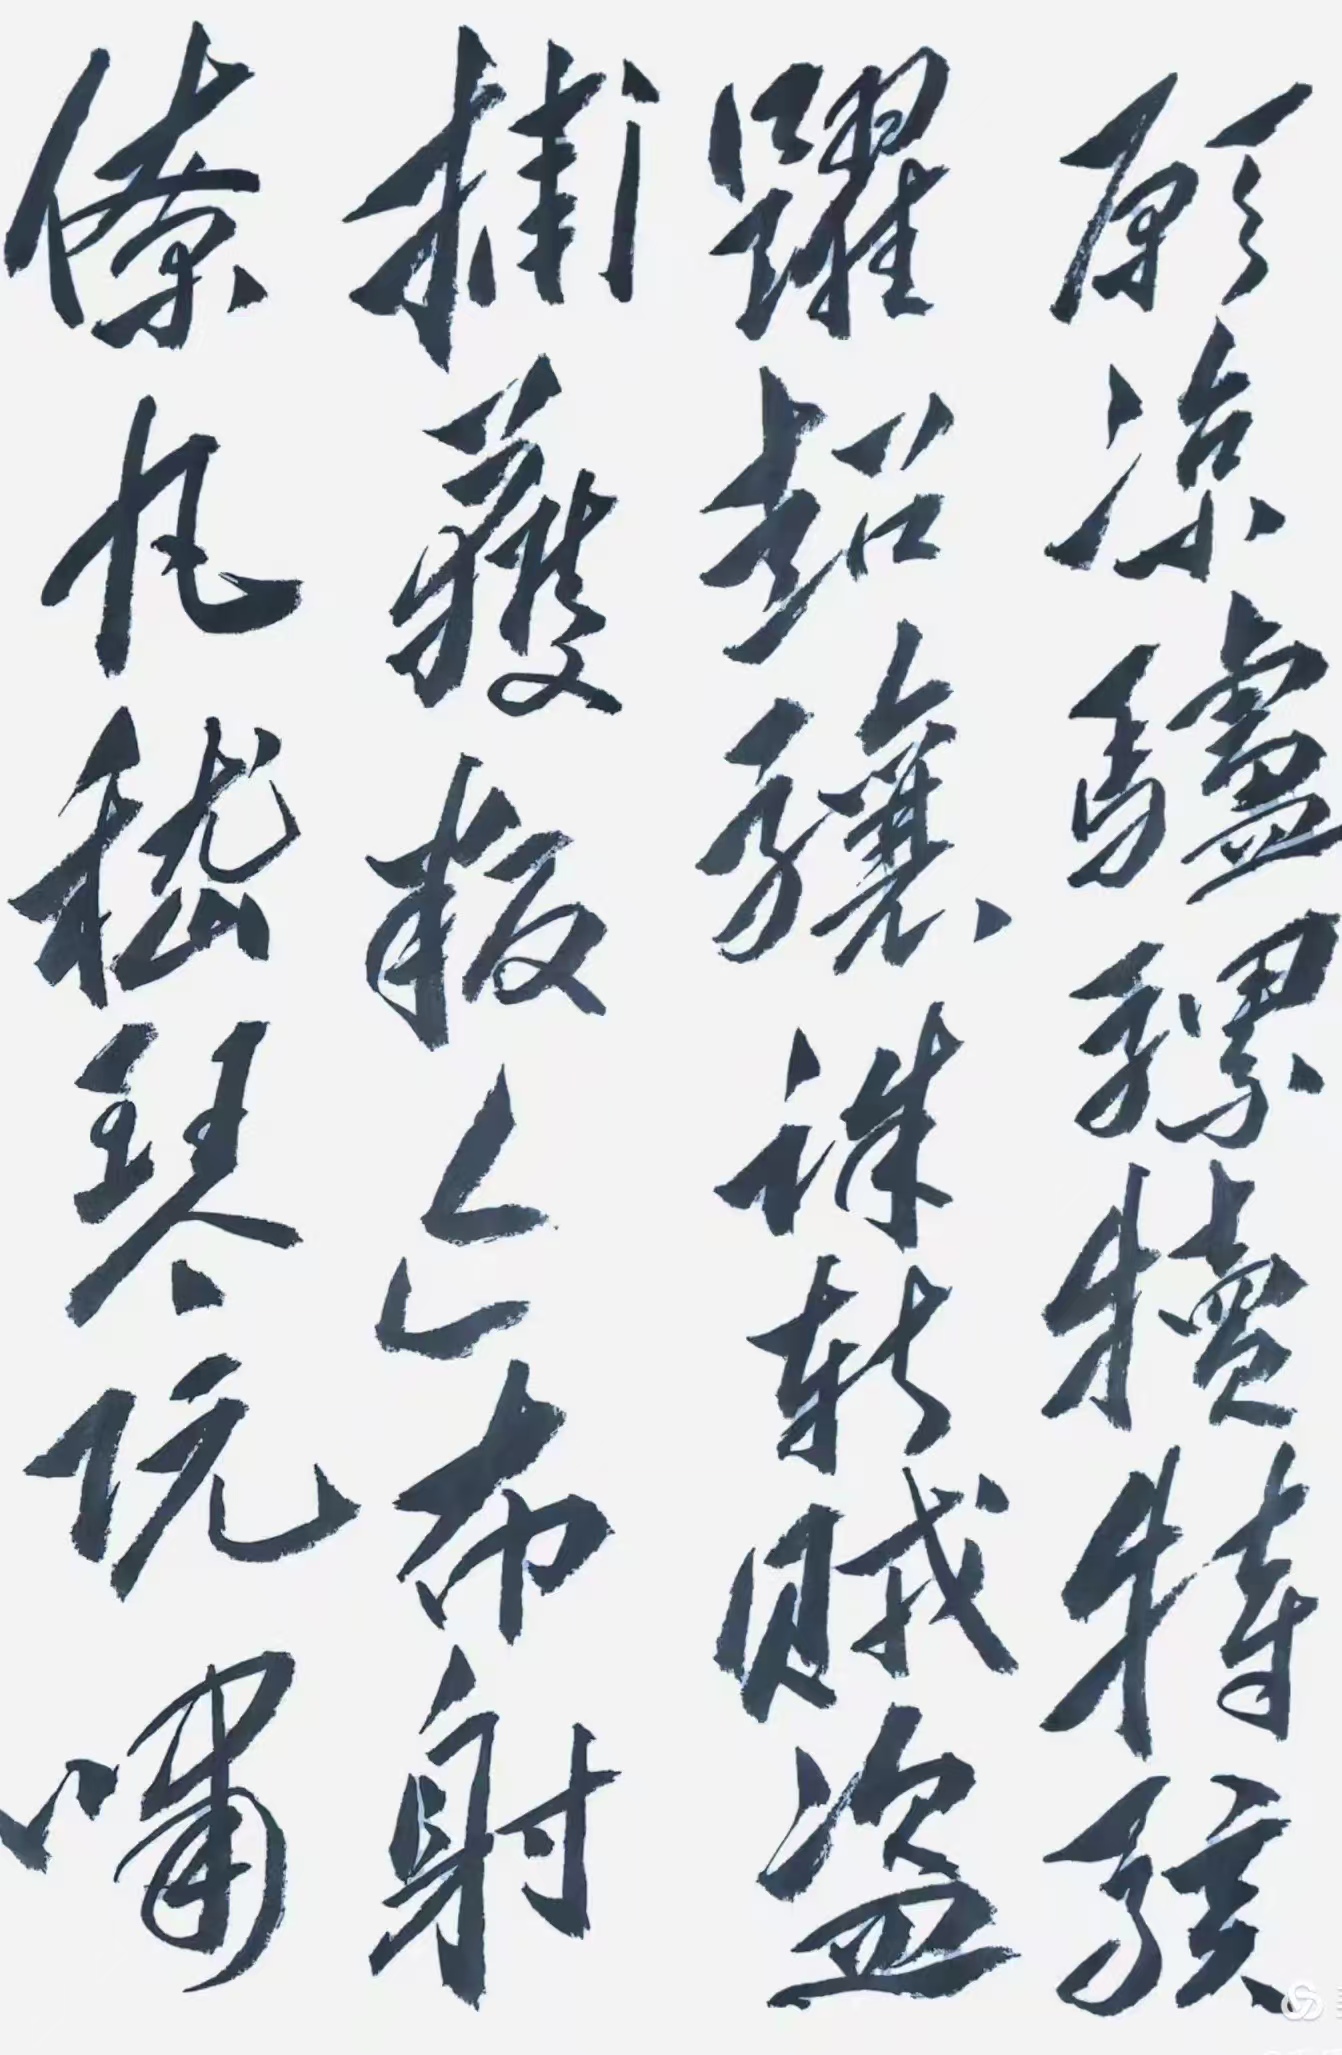 願涼驢騾犢特駭
躍超驤誅斬賊盜
捕獲叛亡布射
僚丸嵇琴阮嘯